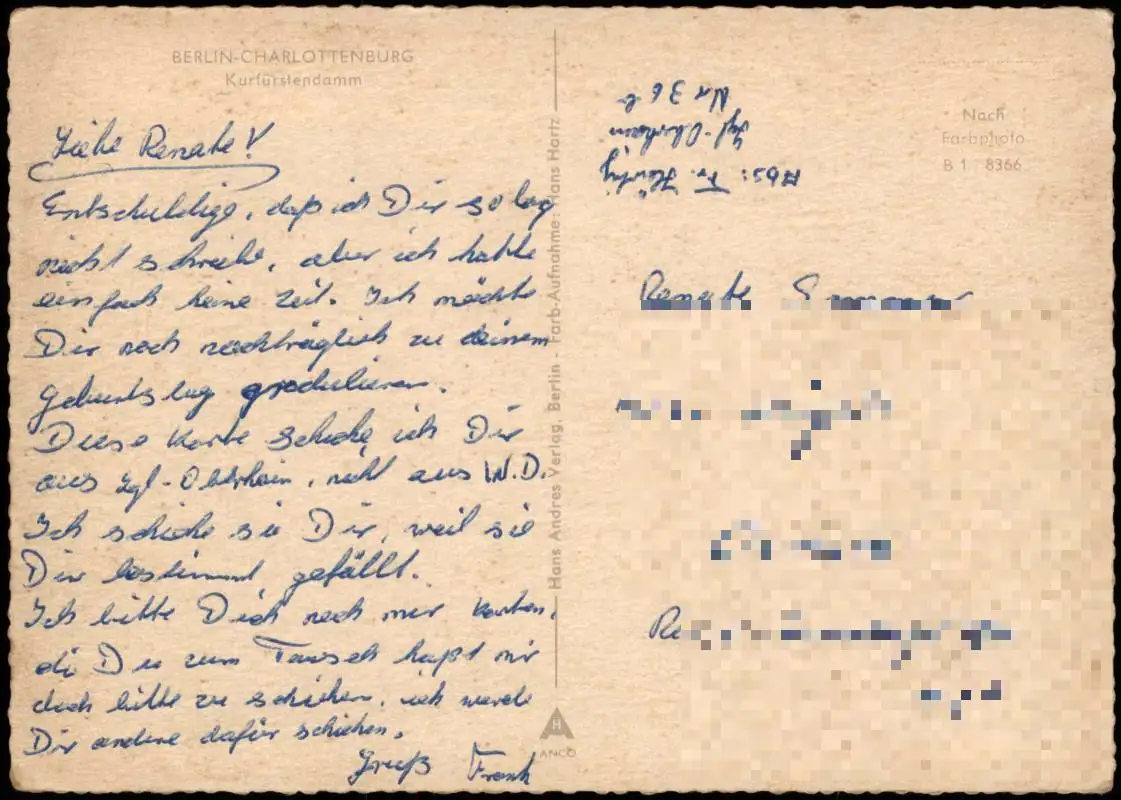 BERLIN-CHARLOTTENBURG
Kurfürstendamm
Liebe Renate!
Entschuldige, daß ich Dir so lang
nicht schreibe, aber ich hatte
einfach keine Zeit. Ich möchte
Dir noch nachträglich zu deinem
Geburtstag gradulieren.
Diese Karte schicke ich Dir
aus Igl-Oberhain, nicht aus W.D.
Ich schicke sie Dir, weil sie
Dir bestimmt gefällt.
Ich bitte Dich noch mir Karten,
di Du zum Tausch haßt mir
doch bitte zu schicken, ich werde
Dir andere dafür schicken.
Gruß Frank
Hans Andres Verlag, Berlin - Farb-Aufnahme: Hans Hartz
ANCO
Abs: Fr.
Igl-Oberhain
Nr 36 b
Nach
Farbphoto
B 1 8366
Renate